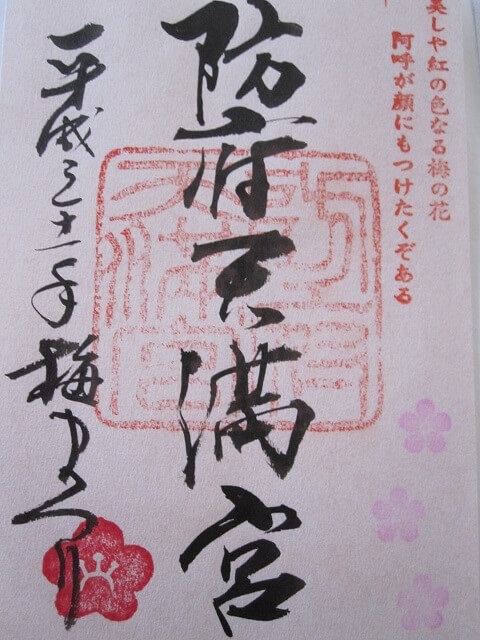 美しや紅の色なる梅の花
阿呼が顔にもつけたくぞある
防府天満宮
平成三十一年梅まつり